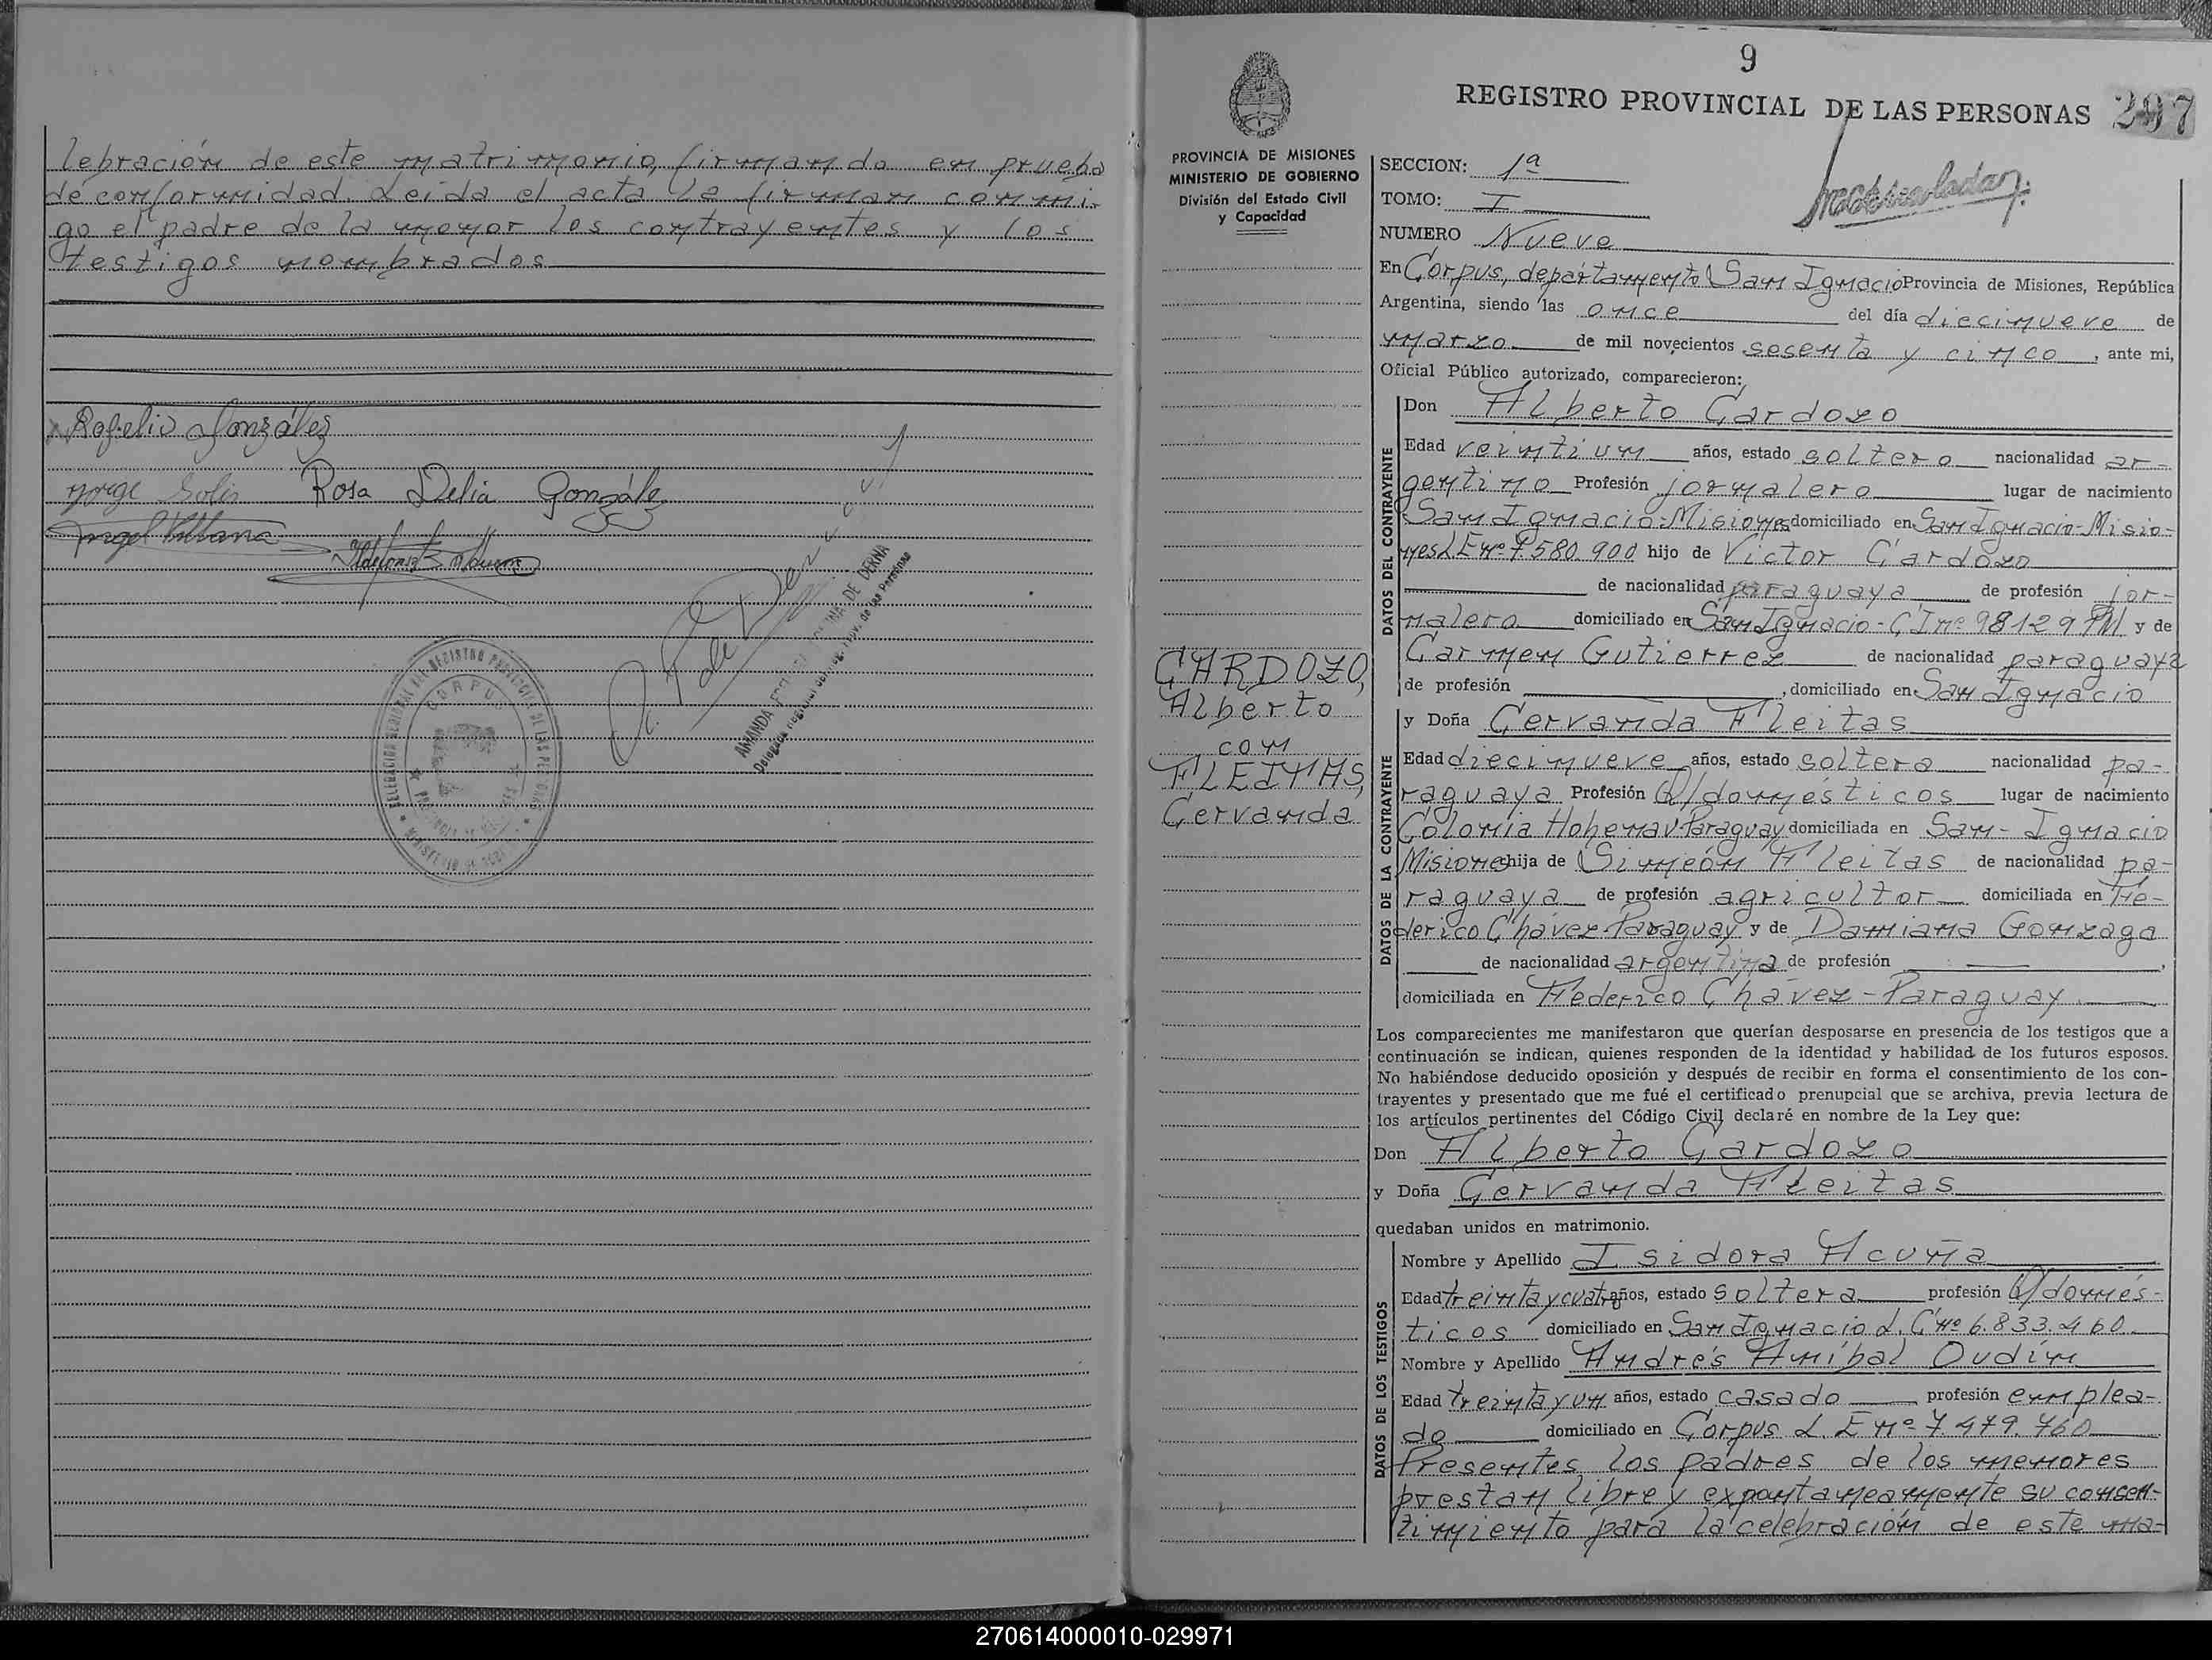 lebración de este matrimonio, firmando en prueba
de conformidad. Leída el acta la firman conmi-
go el padre de la menor los contrayentes y los
testigos nombrados
Rogelio González
Jorge Solis Rosa Delia González
Angel Villana
CORPUS
9
REGISTRO PROVINCIAL DE LAS PERSONAS 297
PROVINCIA DE MISIONES
MINISTERIO DE GOBIERNO
División del Estado Civil
y Capacidad
SECCION: 1ª
TOMO: I
NUMERO Nueve
En Corpus, departamento San Ignacio Provincia de Misiones, República
Argentina, siendo las once del día diecinueve de
marzo de mil novecientos sesenta y cinco, ante mi,
Oficial Público autorizado, comparecieron:
DATOS DEL CONTRAYENTE
Don Alberto Cardozo
Edad veintiun años, estado soltero nacionalidad ar-
gentino Profesión jornalero lugar de nacimiento
San Ignacio-Misiones domiciliado en San Ignacio-Misio-
nes L E nº 7.580.900 hijo de Victor Cardozo
de nacionalidad paraguaya de profesión jor-
nalero domiciliado en San Ignacio - C I nº 98129 PM y de
Carmen Gutierrez de nacionalidad paraguaya
de profesión , domiciliado en San Ignacio
CARDOZO,
Alberto
con
FLEITAS,
Cervanda
DATOS DE LA CONTRAYENTE
y Doña Cervanda Fleitas
Edad diecinueve años, estado soltera nacionalidad pa-
raguaya Profesión Q/domésticos lugar de nacimiento
Colonia Hohenau Paraguay domiciliada en San-Ignacio
Misiones hija de Simeón Fleitas de nacionalidad pa-
raguaya de profesión agricultor domiciliada en Fe-
derico Chávez-Paraguay y de Damiana Gonzaga
de nacionalidad argentina de profesión ,
domiciliada en Federico Chávez - Paraguay
Los comparecientes me manifestaron que querían desposarse en presencia de los testigos que a
continuación se indican, quienes responden de la identidad y habilidad de los futuros esposos.
No habiéndose deducido oposición y después de recibir en forma el consentimiento de los con-
trayentes y presentado que me fué el certificado prenupcial que se archiva, previa lectura de
los artículos pertinentes del Código Civil declaré en nombre de la Ley que:
Don Alberto Cardozo
y Doña Cervanda Fleitas
quedaban unidos en matrimonio.
DATOS DE LOS TESTIGOS
Nombre y Apellido Isidora Acuña
Edad treinta y cuatro años, estado soltera profesión Q/domés-
ticos domiciliado en San Ignacio L. C nº 6.833.460
Nombre y Apellido Andrés Aníbal Oudín
Edad treinta y un años, estado casado profesión emplea-
do domiciliado en Corpus L. E nº 7.479.760
Presentes los padres de los menores
prestan libre y expontaneamente su consen-
timiento para la celebración de este ma-
270614000010-029971